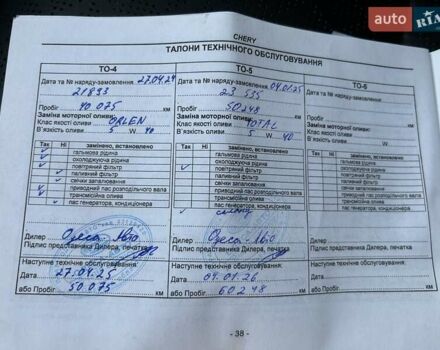 auto RIA
- 38 -
CHERY
ТАЛОНИ ТЕХНІЧНОГО ОБСЛУГОВУВАННЯ
ТО-4
Дата та № наряду-замовлення 27.04.24
21893
Пробіг 40 075 км
Заміна моторної оливи:
Клас якості оливи ORLEN
В'язкість оливи 5 W 40
Так Ні замінено, встановлено
гальмова рідина
охолоджуюча рідина
повітряний фільтр
паливний фільтр
свічки запалювання
приводний пас розподільчого вала
трансмісійна олива
пас генератора, кондиціонера
Дилер Одеса-Авто
Підпис представника Дилера, печатка
Наступне технічне обслуговування:
Дата 27.04.25
або Пробіг 50 075 км
ТО-5
Дата та № наряду-замовлення 04.01.25
23 535
Пробіг 50248 км
Заміна моторної оливи:
Клас якості оливи TOTAL
В'язкість оливи 5 W 40
Так Ні замінено, встановлено
гальмова рідина
охолоджуюча рідина
повітряний фільтр
паливний фільтр
свічки запалювання
приводний пас розподільчого вала
трансмісійна олива
пас генератора, кондиціонера
Дилер Одеса-Авто
Підпис представника Дилера, печатка
Наступне технічне обслуговування:
Дата 04.01.26
або Пробіг 60 248 км
ТО-6
Дата та № наряду-замовлення
Пробіг км
Заміна моторної оливи:
Клас якості оливи
В'язкість оливи W
Так Ні замінено, встановлено
гальмова рідина
охолоджуюча рідина
повітряний фільтр
паливний фільтр
свічки запалювання
приводний пас розподільчого вала
трансмісійна олива
пас генератора, кондиціонера
Дилер
Підпис представника Дилера, печатка
Наступне технічне обслуговування:
Дата
або Пробіг км
- 38 -